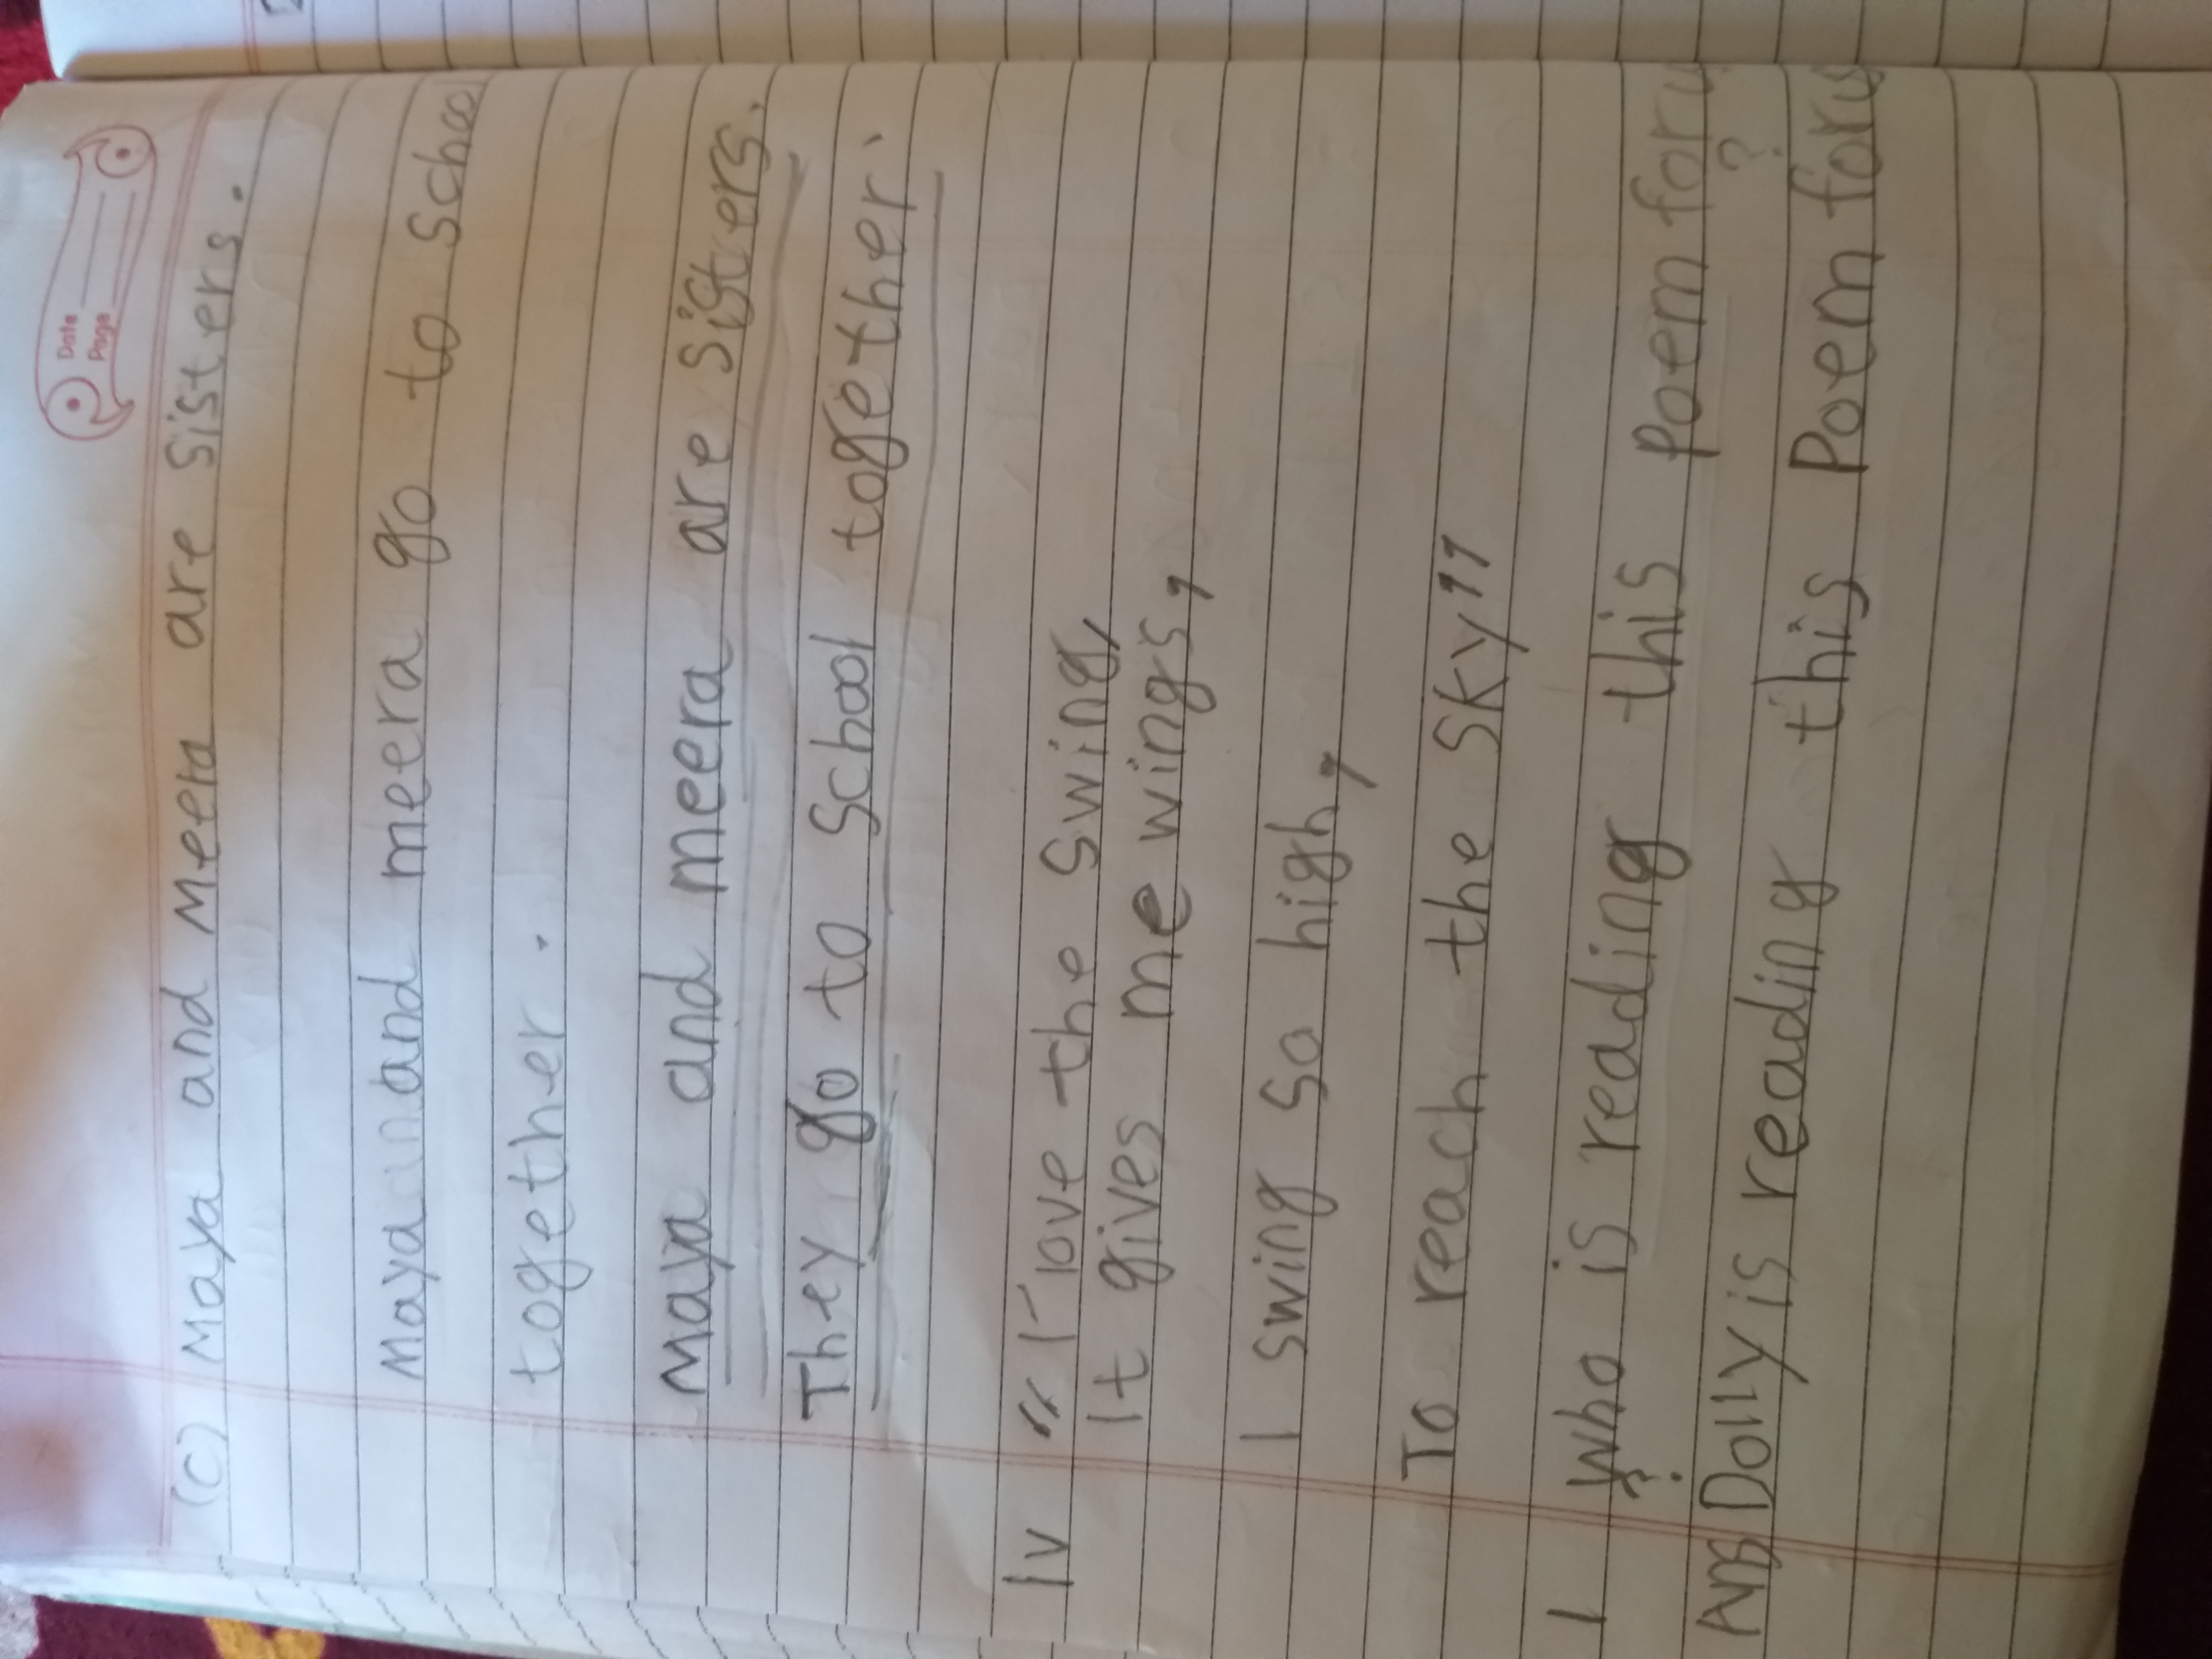 Date
Page
(C) Maya and Meera are sisters.
Maya and meera go to schoo
together.
Maya and meera are sisters.
They go to school together.
IV “I love the swing,
It gives me wings,
I swing so high,
To reach the sky”
1 Who is reading this poem for u
?
Ans Dolly is reading this Poem for us